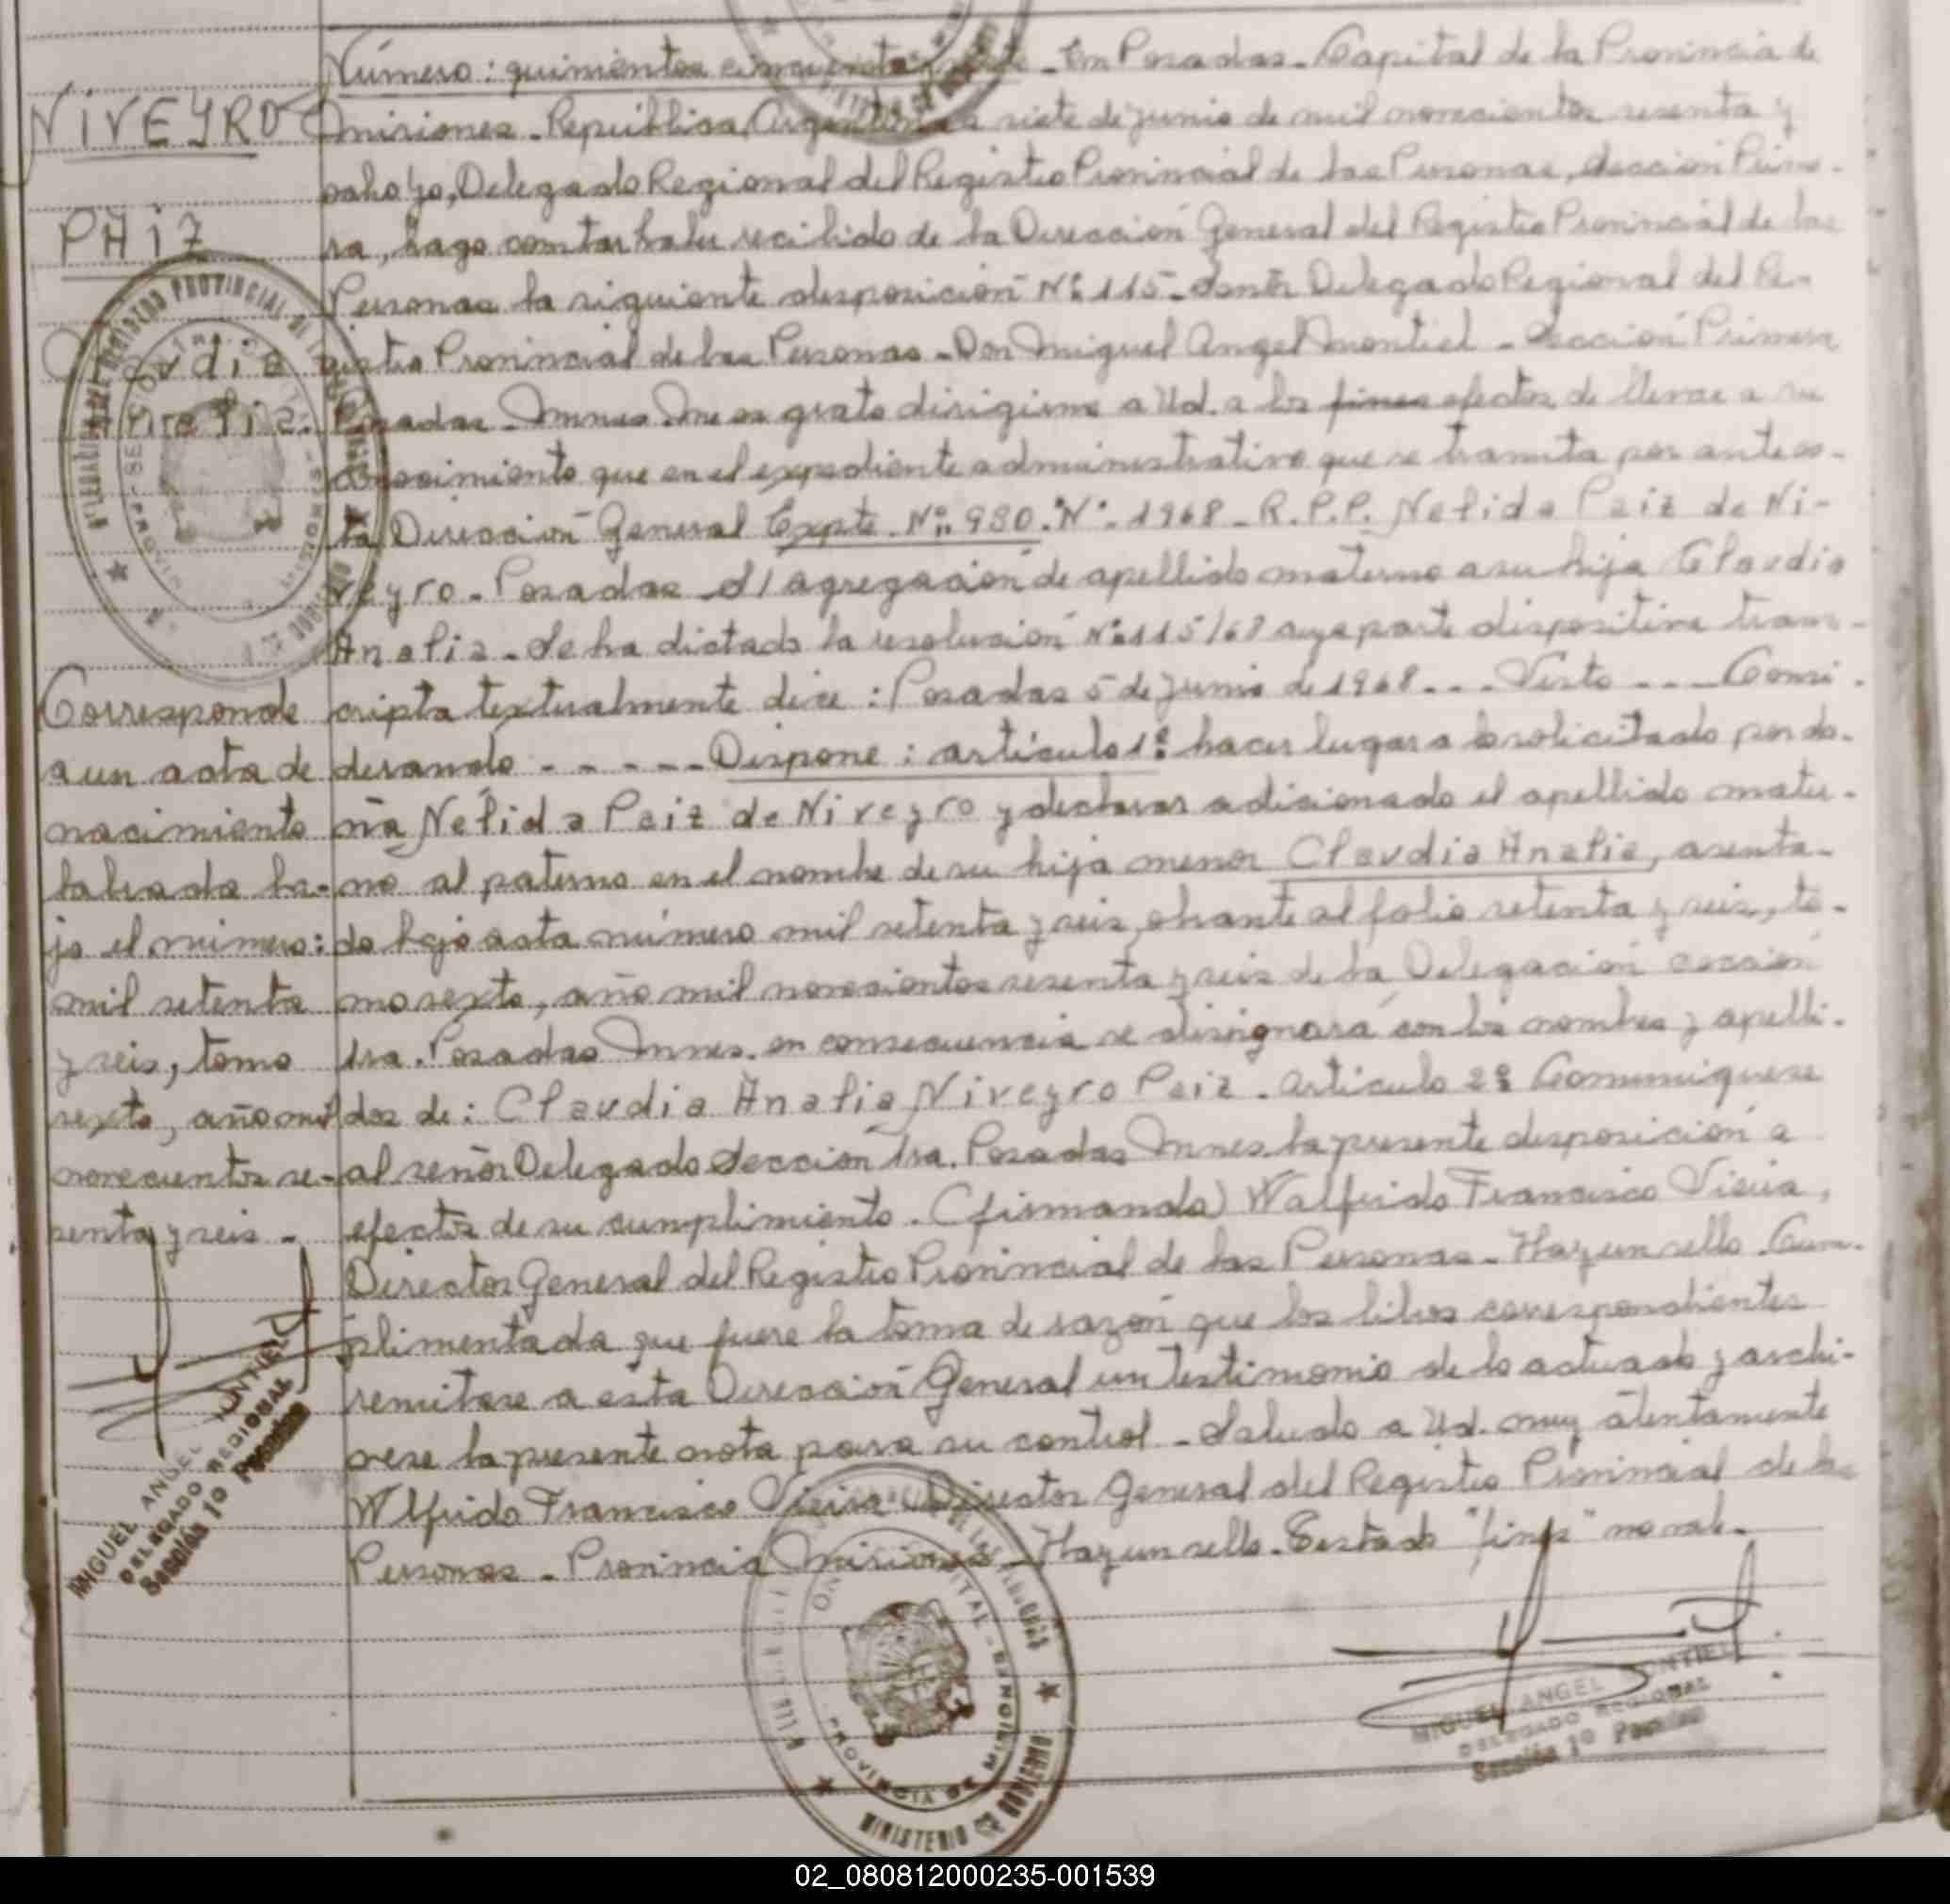 Número: quinientos cincuenta - En Posadas - Capital de la Provincia de
NIVEYRO
Misiones - República Argentina a siete de junio de mil novecientos sesenta y
ocho Yo, Delegado Regional del Registro Provincial de las Personas, Sección Prime-
PAIZ
ra, hago constar haber recibido de la Dirección General del Registro Provincial de las
Personas la siguiente disposición Nº 115 - Señor Delegado Regional del Re-
Claudia
gistro Provincial de las Personas - Don Miguel Angel Montiel - Sección Primera
Analia.
Posadas - Mnes. Me es grato dirigirme a Ud. a los fines efectos de llevar a su
conocimiento que en el expediente administrativo que se tramita por ante es-
ta Dirección General Expte. Nº 930. "N" - 1968 - R.P.P. Nelida Paiz de Ni-
veyro - Posadas s/ agregación de apellido materno a su hija Claudia
Analia - Se ha dictado la resolución Nº 115/68 cuya parte dispositiva trans-
Corresponde
cripta textualmente dice: Posadas 5 de junio de 1968 - - - Visto - - - Consi-
a un acta de
derando - - - - - Dispone: artículo 1º hacer lugar a lo solicitado por do-
nacimiento
ña Nélida Paiz de Niveyro y declarar adicionado el apellido mater-
labrada ba-
no al paterno en el nombre de su hija menor Claudia Analia, asenta-
jo el número:
do bajo acta número mil setenta y seis, obrante al folio setenta y seis, to-
mil setenta
mo sexto, año mil novecientos sesenta y seis de la Delegación sección
y seis, tomo
1ra. Posadas Mnes. en consecuencia se designará con los nombres y apelli-
sexto, año mil
dos de: Claudia Analia Niveyro Paiz - Artículo 2º Comuníquese
novecientos se-
al señor Delegado Sección 1ra. Posadas Mnes la presente disposición a
senta y seis -
efectos de su cumplimiento. (firmando) Walfrido Francisco Vieira,
Director General del Registro Provincial de las Personas - Hay un sello. Cum-
plimentada que fuere la toma de razón que los libros correspondientes
remitase a esta Dirección General un testimonio de lo actuado y archi-
vese la presente nota para su control - Saludo a Ud. muy atentamente
Walfrido Francisco Vieira - Director General del Registro Provincial de las
Personas - Provincia Misiones - Hay un sello - Testado "fines" no vale -
MIGUEL ANGEL MONTIEL
DELEGADO REGIONAL
Sección 1º Posadas
MIGUEL ANGEL MONTIEL
DELEGADO REGIONAL
Sección 1º Posadas
PROVINCIA DE MISIONES
MINISTERIO DE GOBIERNO
02_080812000235-001539